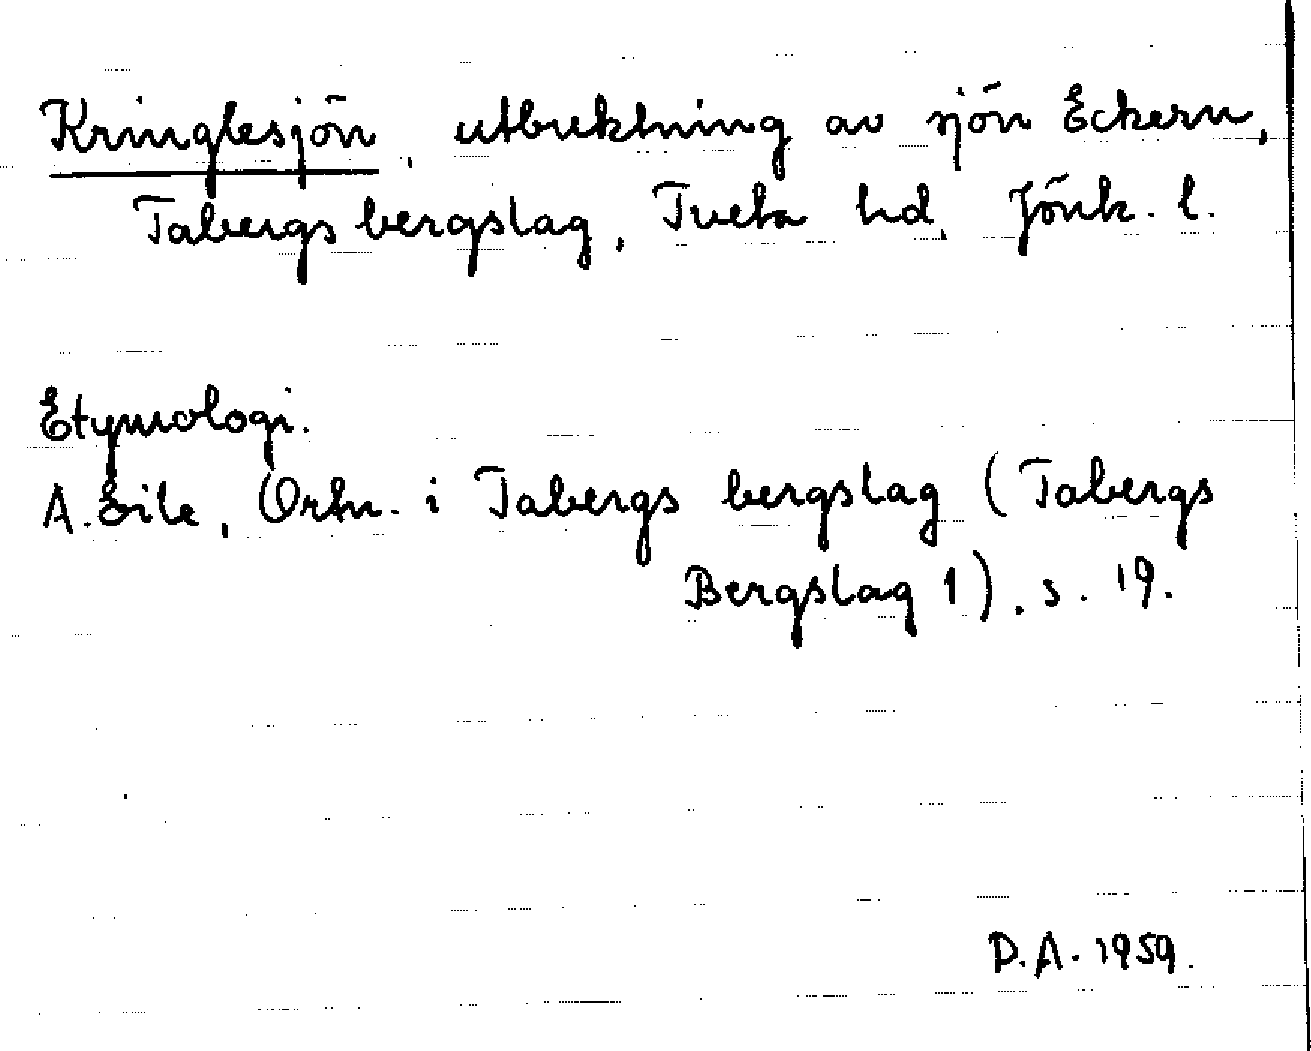 Kringlesjön, utbuktning av sjön Eckern,
Tabergs bergslag, Tveta hd, Jönk. l.
Etymologi.
A. Eile, Ortn. i Tabergs bergslag (Tabergs
Bergslag 1), s. 19.
D.A. 1959.